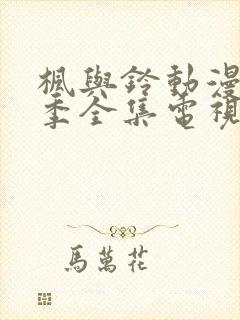 楓與鈴動漫
季全集電視
馬萬花